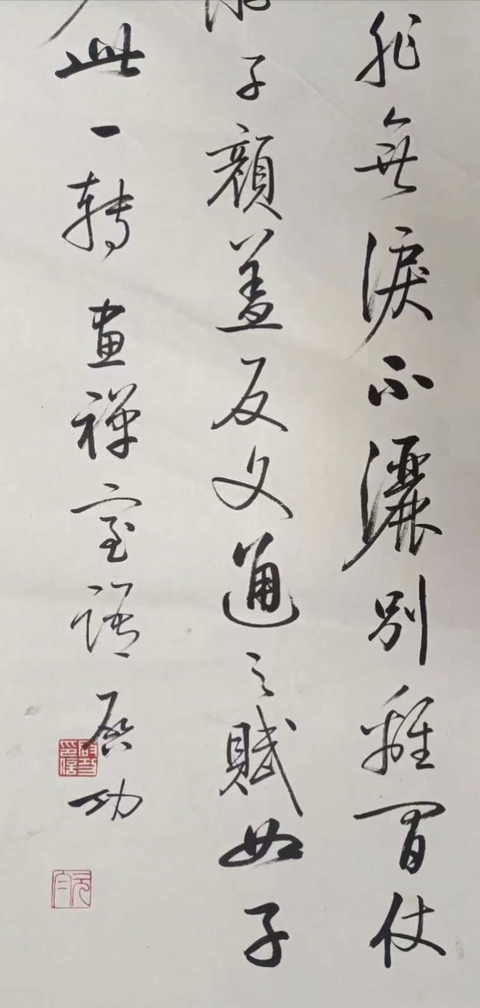 非無淚不灑別離間仗
子顏蓋反文通之賦如子
此一轉畫禪室語 啟功